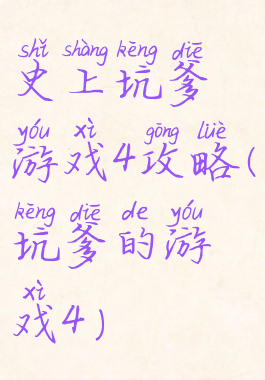 shǐ shàng kēng diē
史上坑爹
yóu xì gōng lüè
游戏4攻略(
kēng diē de yóu
坑爹的游
xì
戏4)